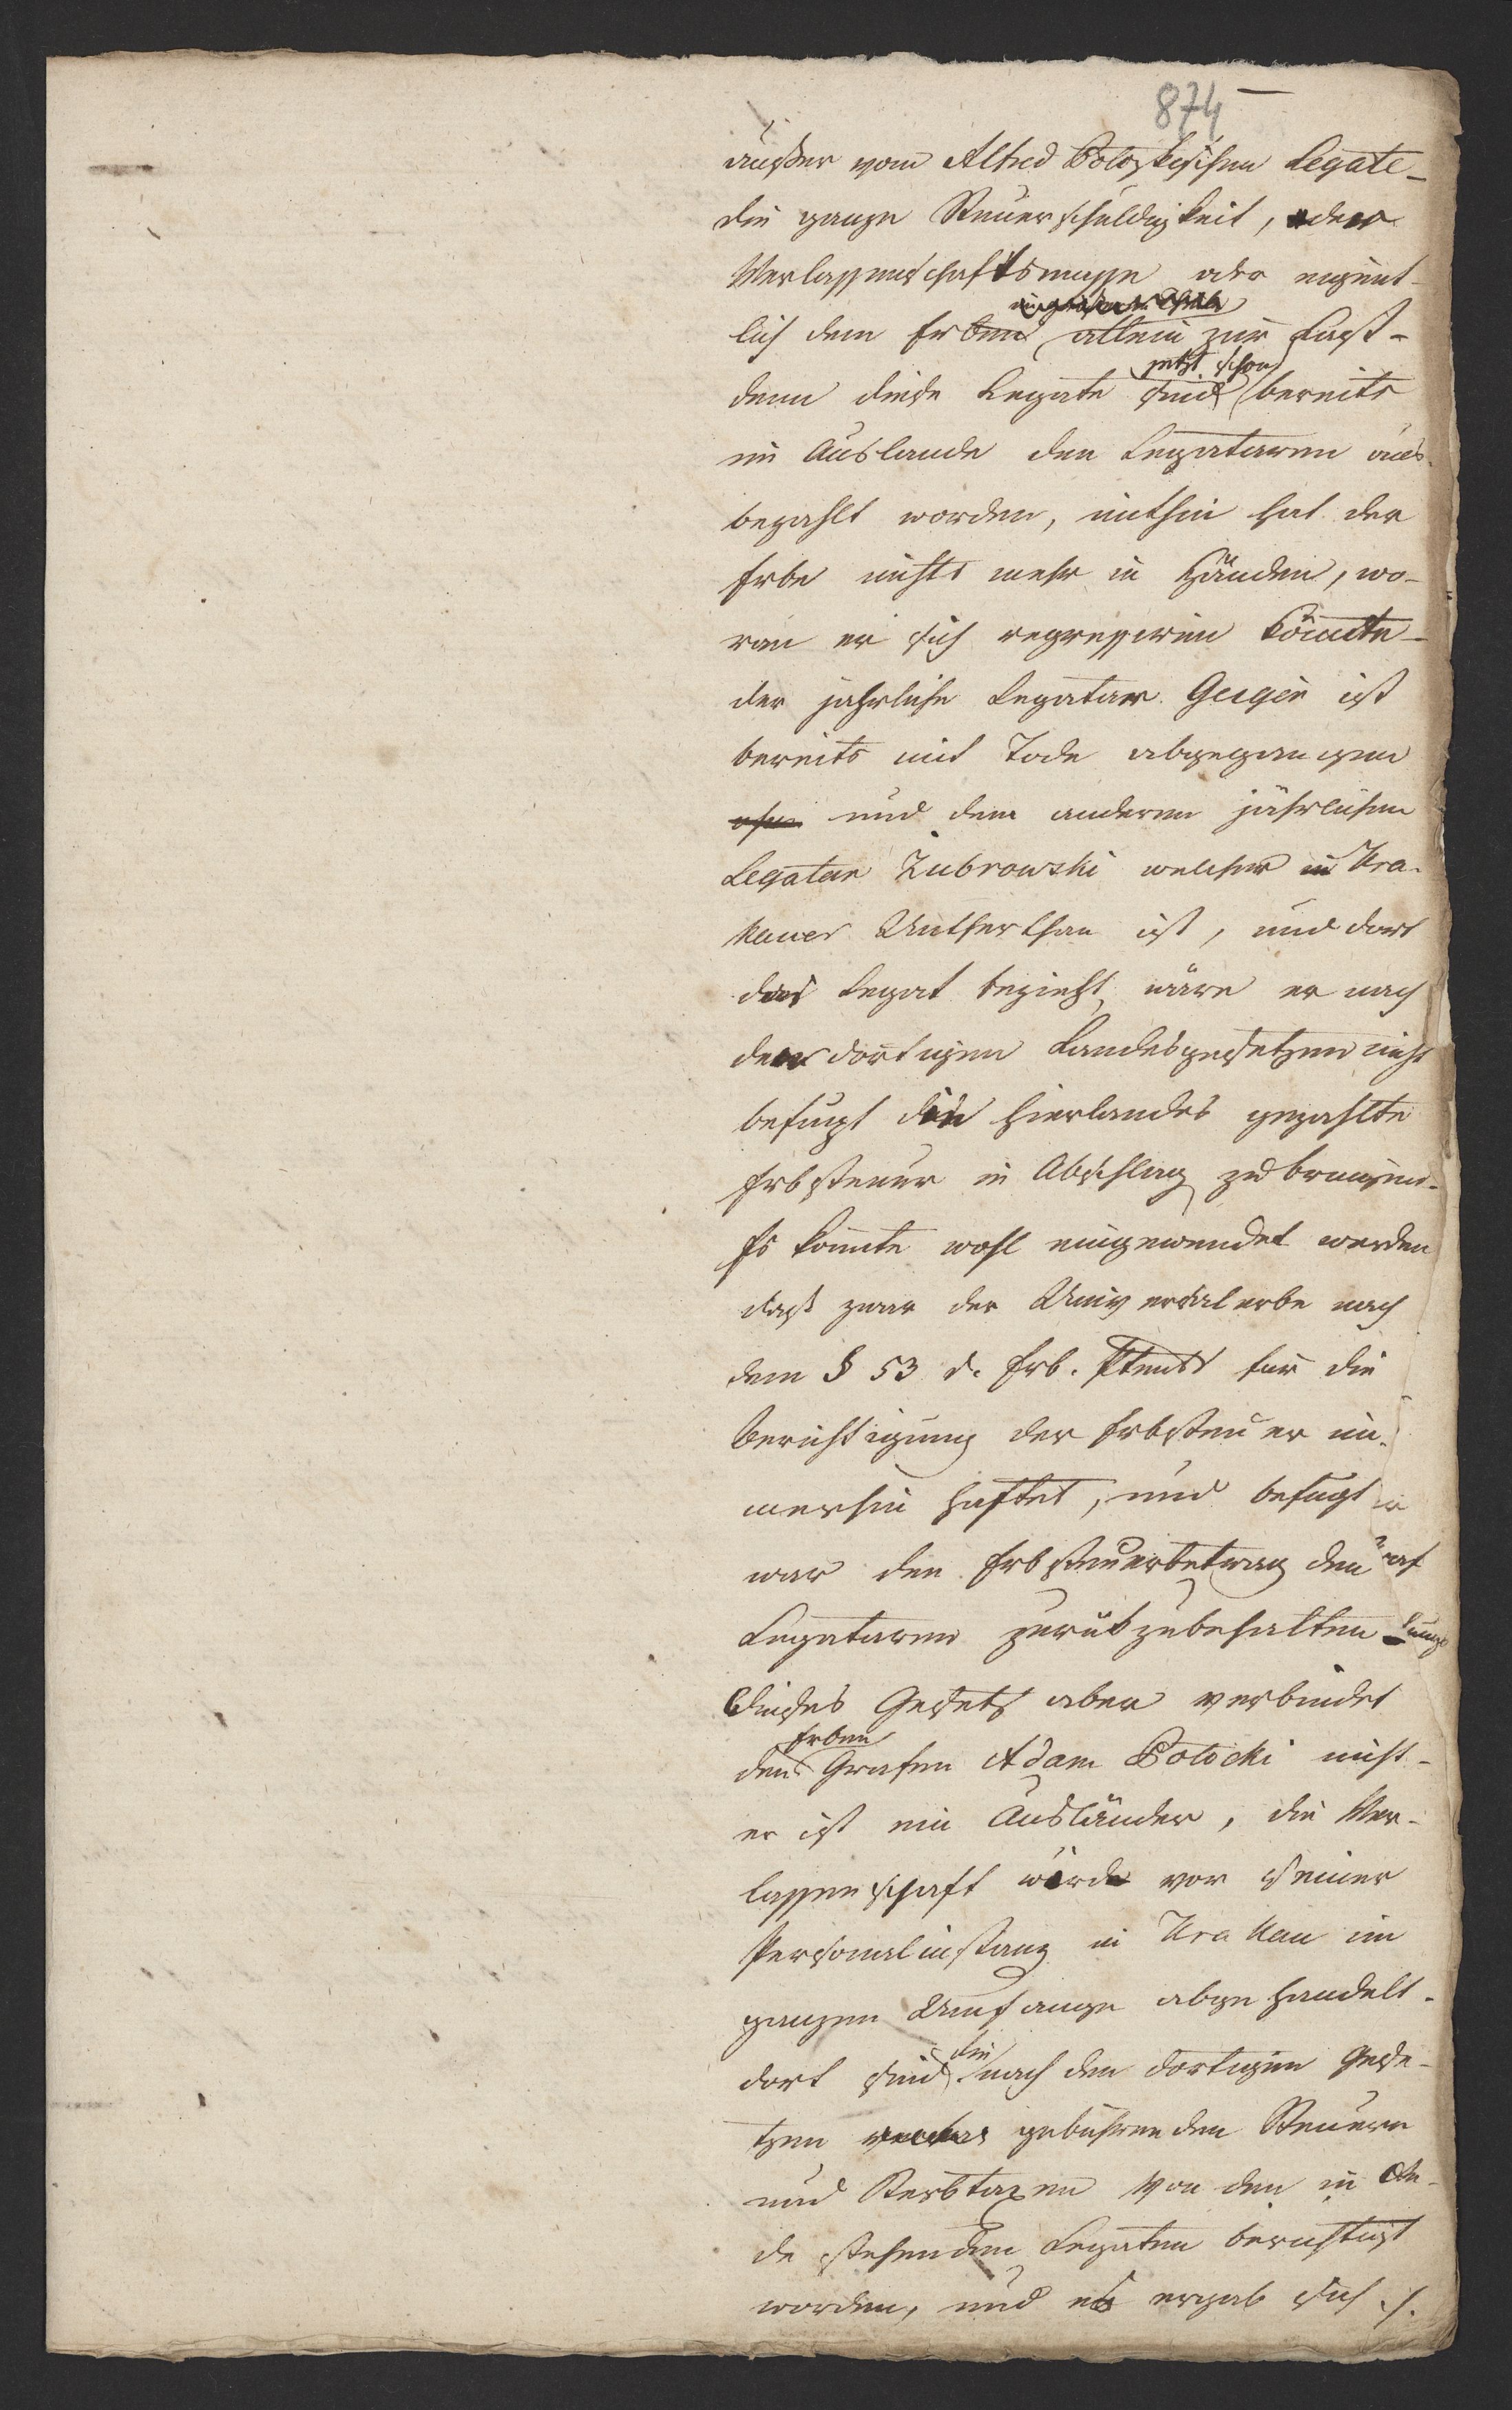 874
außer vom Alfred Potozkischen Legate -
die ganze Steuerschuldigkeit, der
Verlassenschaftsmasse oder eigent-
lich dem Erben allein zur Last -
jetzt schon
denn diese Legate sind bereits
im Auslande den Legataren aus-
bezahlt worden, mithin hat der
Erbe nichts mehr in Händen, wo-
ran er sich regressiren könnte -
der jahrliche Legatar ist
bereits mit Tode abgegangen
und dem anderen jährlichen
Legatar Zubrowski welcher in Kra-
kauer Unterthan ist, und dort
das Legat bezieht, wäre er nach
den dortigen Landesgesetzen nicht
befugt die hierlandes gezahlte
Erbsteuer in Abschlag zu bringen -
Es könnte wohl eingewendet werden
daß zwar der Universalerbe nach
dem § 53 d. Erb. Ptents für die
Berichtigung der Erbsteuer im-
merhin haftet, und befugt
war den Erbsteuerbetrag den
Legataren zurükzubehalten
dieses Gesetz aber verbindet
Erben
den Grafen Adam Potocki nicht -
er ist ein Ausländer, die Ver-
lassenschaft wurde vor seiner
Personalinstanz in Krakau im
ganzen Umfange abgehandelt -
die
dort sind nach den dortigen Gese-
tzen gebührenden Steuern
und Sterbtaxen von den in Re-
de stehenden Legaten berichtigt
worden, und es ergab sich ./.